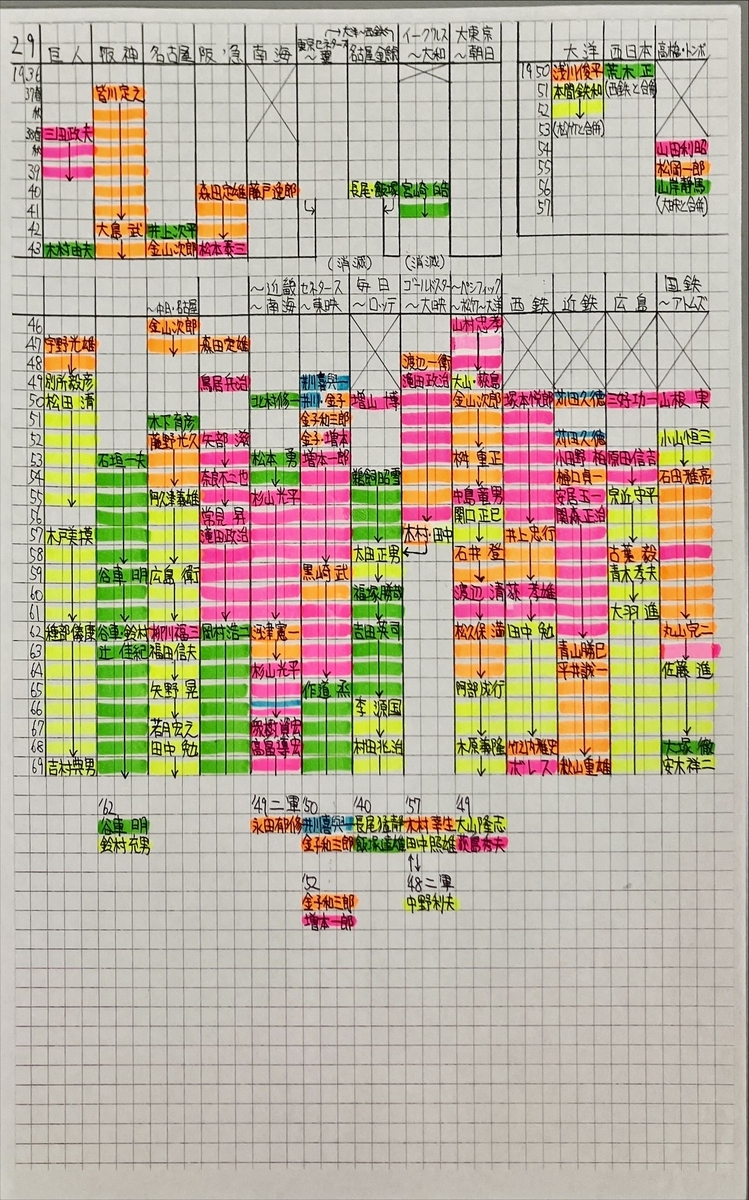 29 巨人 阪神 名古屋 阪急 南海 東京セネタース～翼 大洋～西鉄 名古屋金鯱 イーグルス～大和 大東京～朝日 大洋 西日本 高橋・トンボ
1936 1950 浅川俊平 荒木正
37春 皆川定之 51 本間鉄和 (西鉄と合併)
秋 52
38春 三田政夫 53 (松竹と合併)
秋 54 山田利昭
39 55 松岡一郎
40 森田定雄 藤戸逵郎 長尾・飯塚 宮崎 56 山岸静馬
41 57 (大映と合併)
42 大島武 井上次平
43 木村由夫 金山次郎 松本泰三
(消滅) (消滅)
～中日・名古屋 ～近畿～南海 セネタース～東映 毎日～ロッテ ゴールドスター～大映 ～パシフィック～松竹～大洋 西鉄 近鉄 広島 国鉄～アトムズ
46 金山次郎 山村忠孝
47 宇野光雄 森田定雄
48 渡辺一衛
49 別所毅彦 鳥居兵治 井川喜與一 濱田政治 大山・荻島
50 松田清 北村修一 井川・金子 増山博 金山次郎 塚本悦郎 苅田久徳 三好功一 山根実
51 木下育彦 金子和三郎
52 藤野光久 矢部滋 金子・増本 苅田久徳 小山恒三
53 石垣一夫 松本勇 増本一郎 桝重正 小田野柏 原田信吉
54 奈良不二也 鵜飼昭雪 樋口貞一 石田雅亮
55 阿久津義雄 杉山光平 中島章男 安居玉一 宗近守平
56 常見昇 関口正巳 関森正治
57 木戸美摸 濱田政治 木村・田中 井上忠行
58 大田正男 石井登 古葉毅
59 谷車明 広島衛 黒崎武 青木孝夫
60 福塚勝哉 渡辺清 荻孝雄
61 大羽進
62 種部儀康 谷車・鈴村 柳川福三 岡村浩二 江津憲一 吉田英司 松久保満 田中勉 丸山完二
63 辻佳紀 福田信夫 青山勝巳
64 杉山光平 平井誠一 佐藤進
65 矢野晃 作道烝 阿部成行
66 李源国
67 若月宏之
68 田中勉 高畠導宏 村田兆治 木原義隆 竹之内雅史 大塚徹
69 吉村典男 ボレス 秋山重雄 安木祥二
'62 '49二軍 '50 '40 '57 '49
谷車明 永田郁修 井川喜與一 長尾猛静 木村幸生 大山隆志
鈴村充男 金子和三郎 飯塚達雄 田中照雄 荻島秀夫
'52 '48二軍
金子和三郎 中野利夫
増本一郎